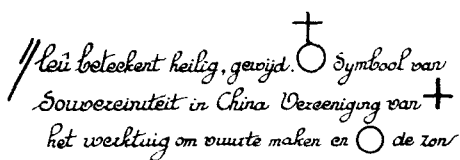 leû beteekent heilig, gewijd. ♁ Symbool van
Souvereiniteit in China Vereeniging van +
het werktuig om vuurte maken en ◯ de zon